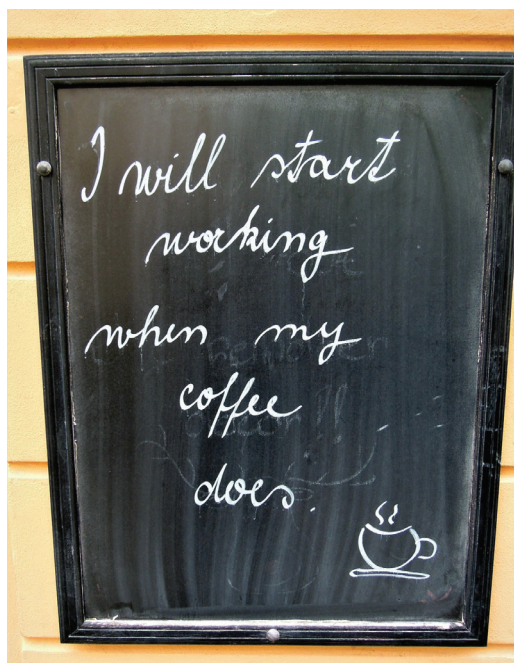 I will start
working
when my
coffee
does.